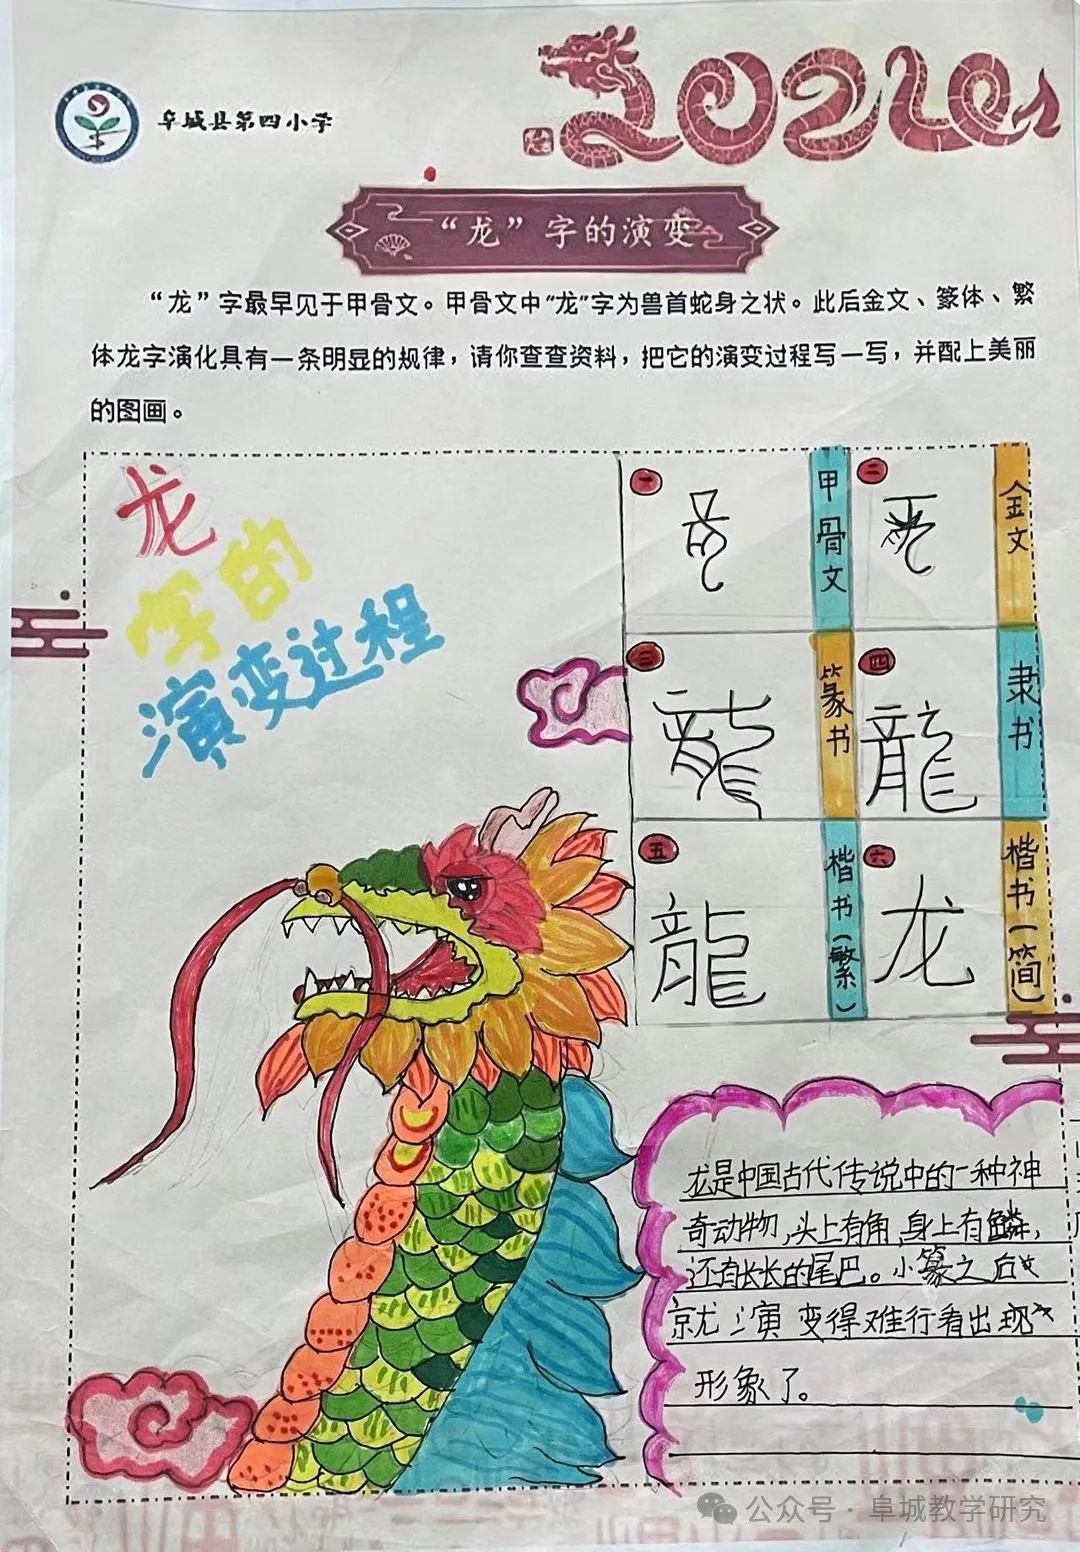 阜城县第四小学
2024
“龙”字的演变
“龙”字最早见于甲骨文。甲骨文中“龙”字为兽首蛇身之状。此后金文、篆体、繁
体龙字演化具有一条明显的规律，请你查查资料，把它的演变过程写一写，并配上美丽
的图画。
龙
字的
演变过程
一
甲骨文
二
金文
三
龍
篆书
四
龍
隶书
五
龍
楷书（繁）
六
龙
楷书（简）
龙是中国古代传说中的一种神
奇动物，头上有角，身上有鳞，
还有长长的尾巴。小篆之后
就 演变得难行看出现
形象了。
公众号·阜城教学研究